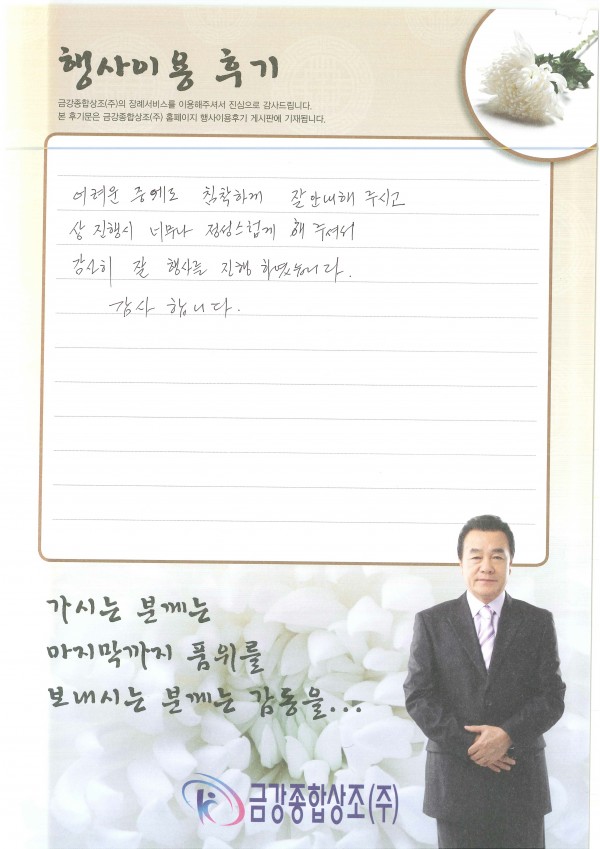 행사이용 후기
금강종합상조(주)의 장례서비스를 이용해주셔서 진심으로 감사드립니다.
본 후기문은 금강종합상조(주) 홈페이지 행사이용후기 게시판에 기재됩니다.
어려운 중에도 침착하게 잘 안내해 주시고
상 진행시 너무나 정성스럽게 해 주셔서
감사히 잘 행사를 진행 하였습니다.
감사 합니다.
가시는 분께는
마지막까지 품위를
보내시는 분께는 감동을...
금강종합상조(주)